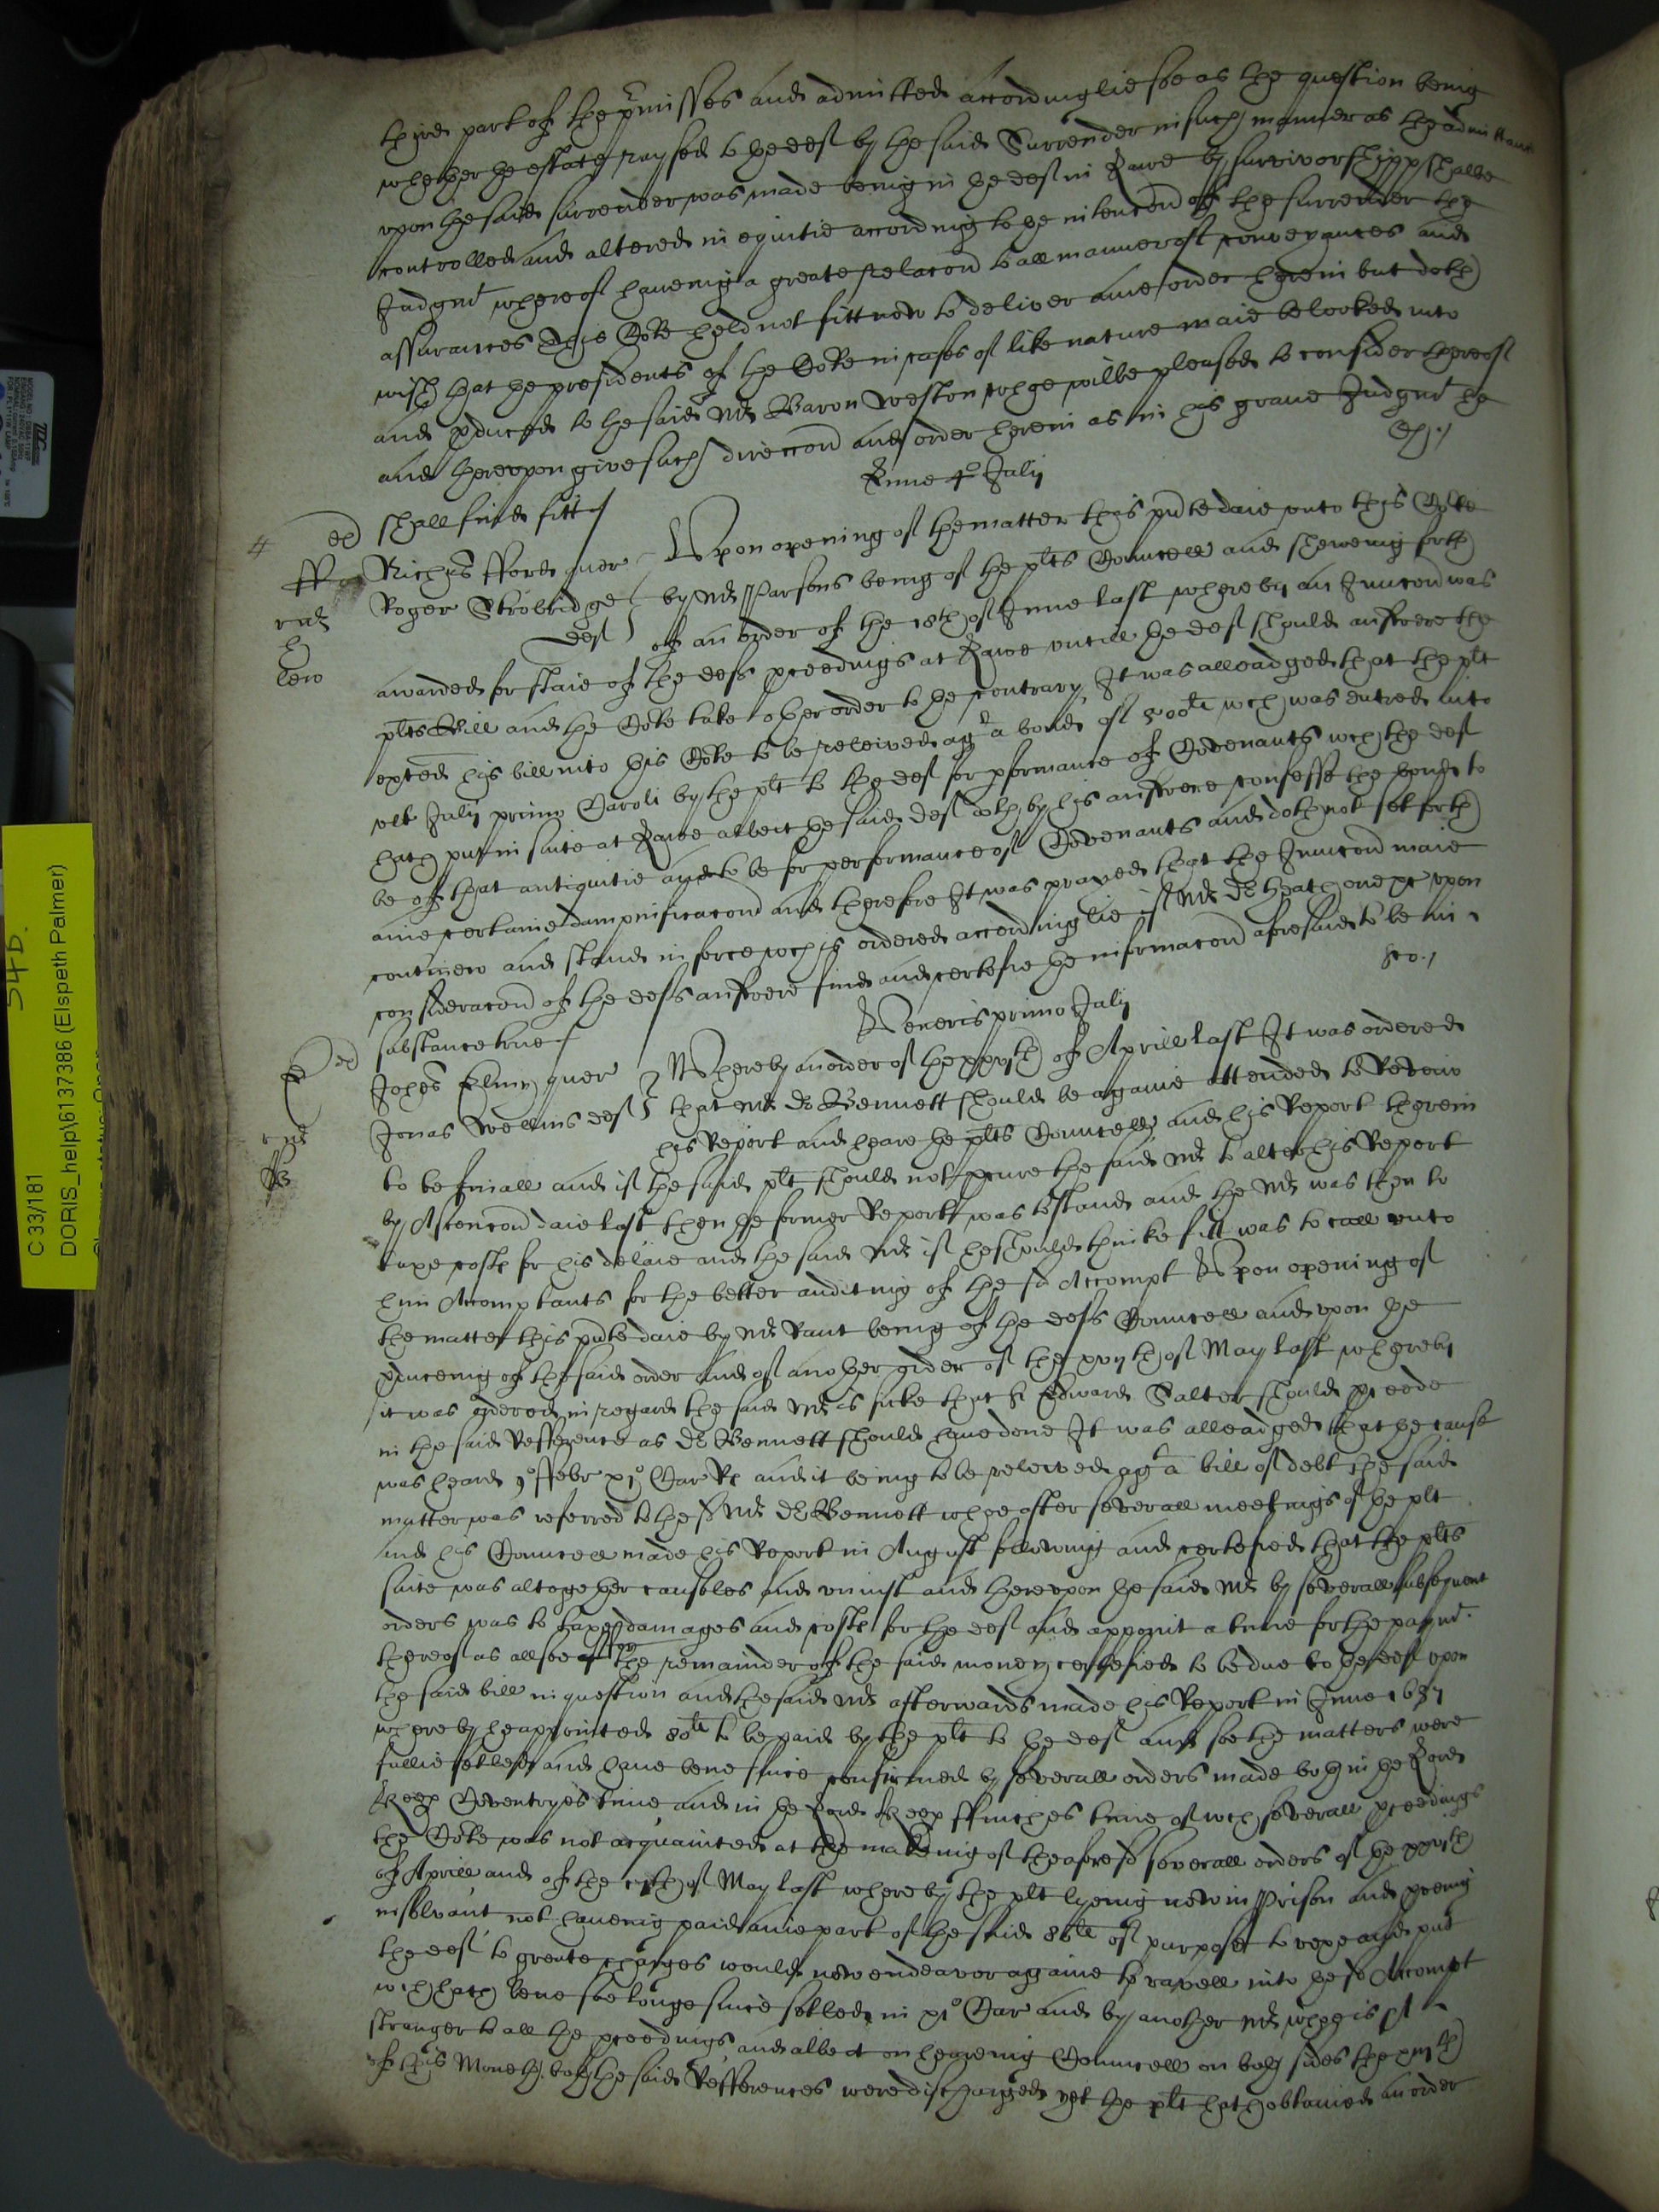 third part of the p^rmisses and admitted accordinglie soe as the question being
whether the estate raysed to the deft by the said Surrender in such manner as the admittanc
upon the said surrender was made being in the deft in Lawe by survivorshipp shalbe
controlled and altered in equitie according to the intencon of the surrender the
Judgmt whereof haveing a greate relacon to all manner of conveyances and
assurances This Cort held not fitt now to deliver anie order therein but doth
wish that the presidents of the Cort in cases of like nature maie be looked into
and pduced to the said Mr Baron Weston whoe wilbe pleased to consider thereof
and thereupon give such direccon and order therein as in his grave Judgmt he
shall finde fitt
Lune 4 Julij
Rich'us fford quer
Roger Strobridge
deft
Upon opening of the matter this pnte daie unto this Cort
by Mr Parsons being of the plts Councell and sheweing forth
of an order of the 18th of June last whereby an Junccon was
awarded for staie of the defts pceedings at Lawe untill the deft should answere the
plts Bill and the Cort take other order to the contrary It was alleadged that the plt
exhted his bill into this Cort to be releived agt a bond of 500li wch was entred into
Julij primo Caroli by the plt to the deft for pformance of Covenants wch the deft
hath put in suite at Lawe albeit the said deft doth by his answere confesse the bond to
be of that antiquitie and to be for performance of Covenants and doth not set forth
anie certaine dampnificacon and therefore It was prayed that the Junccon maie
continew and stand in force wch is ordered accordinglie if Mr upon
consideracon of the defts answere finde and certefie the informacon aforesaid to be in
substance true
Veneris primo Julij
Joh'es quer
Jonas Wellins deft
Whereby an order of the xxvjth of Aprill last It was ordered
that Mr Dr Bennett should be againe attended to Review
his Report and heare the plts Councell and his Report therein
to be finall and if the said plt should not pcure the said Mr to alter his Report
by Ascencon daie last then the former Report was to stand and the Mr was then to
taxe costs for his delaie and the said Mr if he should thinke fitt was to call unto
him Accomptants for the better auditing of the sd Accompt Upon opening of
the matter this pnte daie by Mr Vant being of the defts Councell and upon the
pduceing of the said order and of another order of the xvijth of May last whereby
it was ordered in regard the said Mr is sicke that Sr Edward Salter should pceede
in the said Refference as Dr Bennett should have done It was alleadged that the cause
was heard 9o ffebr xjo Car Rs and it being to be releived agt a bill of debt the said
matter was referred to the sd Mr Dr Bennett whoe after severall meetings of the plt
and his Councell made his Report in August following and certefied that the plts
suite was altogether causeles and uniust and thereupon the said Mr by severall subsequent
orders was to taxe damages and costs for the deft and appoint a time for the paymt
thereof as allsoe for the remainder of the said money certefied to be due to the deft upon
the said bill in question and the said Mr afterwards made his Report in June 1637
whereby he appointed 86li to be paid by the plt to the deft and soe the matters were
fullie setled and have bene since confirmed by severall orders made both in the Lord
Keep Coventryes time and in the Lord Keep ffinches time of wch severall pceedings
the Cort was not acquainted at the makeing of the aforesd severall orders of the xxvjth
of Aprill and of the xvijth of May last whereby the plt lyeing now in Prison and being
insolvant not haveing paid anie part of the said 86li of purpose to vexe and put
the deft to greate charges would now endeavor againe to ravell into the sd Accompt
wch hath bene soe longe since setled in xjo Car and by another Mr whoe is a
stranger to all the pceedings and albeit on heareing Councell on both sides the
of this Moneth both the said Refferences were discharged yet the plt hath obtained an order
C 33/181
DORIS_help\6137386 (Elspeth Palmer)